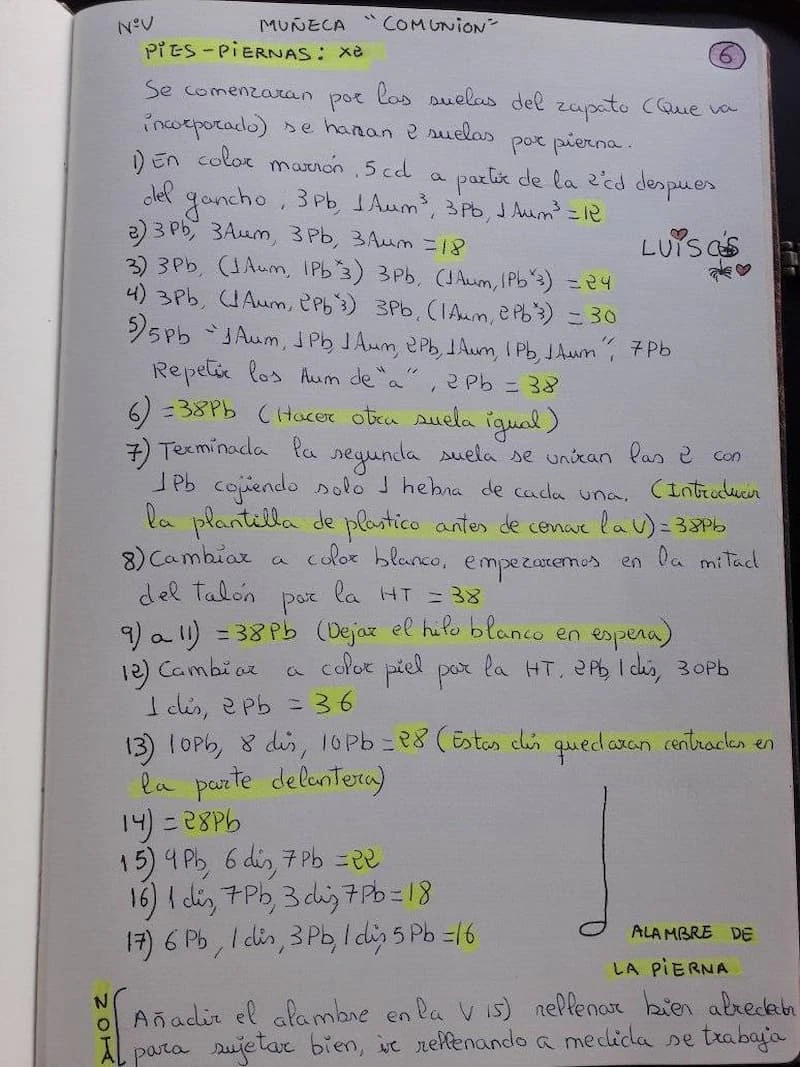 NºV MUÑECA "COMUNION" 6
PIES-PIERNAS: x2
Se comenzaran por las suelas del zapato (Que va
incorporado) se haran 2 suelas por pierna.
1) En color marrón, 5cd a partir de la 2ªcd despues
del gancho, 3Pb, 1Aum³, 3Pb, 1Aum³ =12
2) 3Pb, 3Aum, 3Pb, 3Aum =18
3) 3Pb, (1Aum, 1Pb ˣ3) 3Pb, (1Aum, 1Pb ˣ3) = 24
4) 3Pb, (1Aum, 2Pb ˣ3) 3Pb, (1Aum, 2Pb ˣ3) = 30
LUISCÓS
5) 5Pb "1Aum, 1Pb, 1Aum, 2Pb, 1Aum, 1Pb, 1Aum", 7Pb
Repetir los Aum de "a", 2Pb = 38
6) =38Pb (Hacer otra suela igual)
7) Terminada la segunda suela se uniran las 2 con
1Pb cojiendo solo 1 hebra de cada una. (Introducir
la plantilla de plastico antes de cerrar la V)=38Pb
8) Cambiar a color blanco, empezaremos en la mitad
del talón por la HT = 38
9) a 11) =38Pb (Dejar el hilo blanco en espera)
12) Cambiar a color piel por la HT, 2Pb, 1dis, 30Pb
1 dis, 2Pb = 36
13) 10Pb, 8 dis, 10Pb =28 (Estas dis quedaran centradas en
la parte delantera)
14) =28Pb
15) 9Pb, 6 dis, 7Pb =22
16) 1 dis, 7Pb, 3 dis, 7Pb=18
17) 6Pb, 1dis, 3Pb, 1dis, 5Pb =16
ALAMBRE DE
LA PIERNA
NOTA
Añadir el alambre en la V 15) rellenar bien alrededor
para sujetar bien, ir rellenando a medida se trabaja